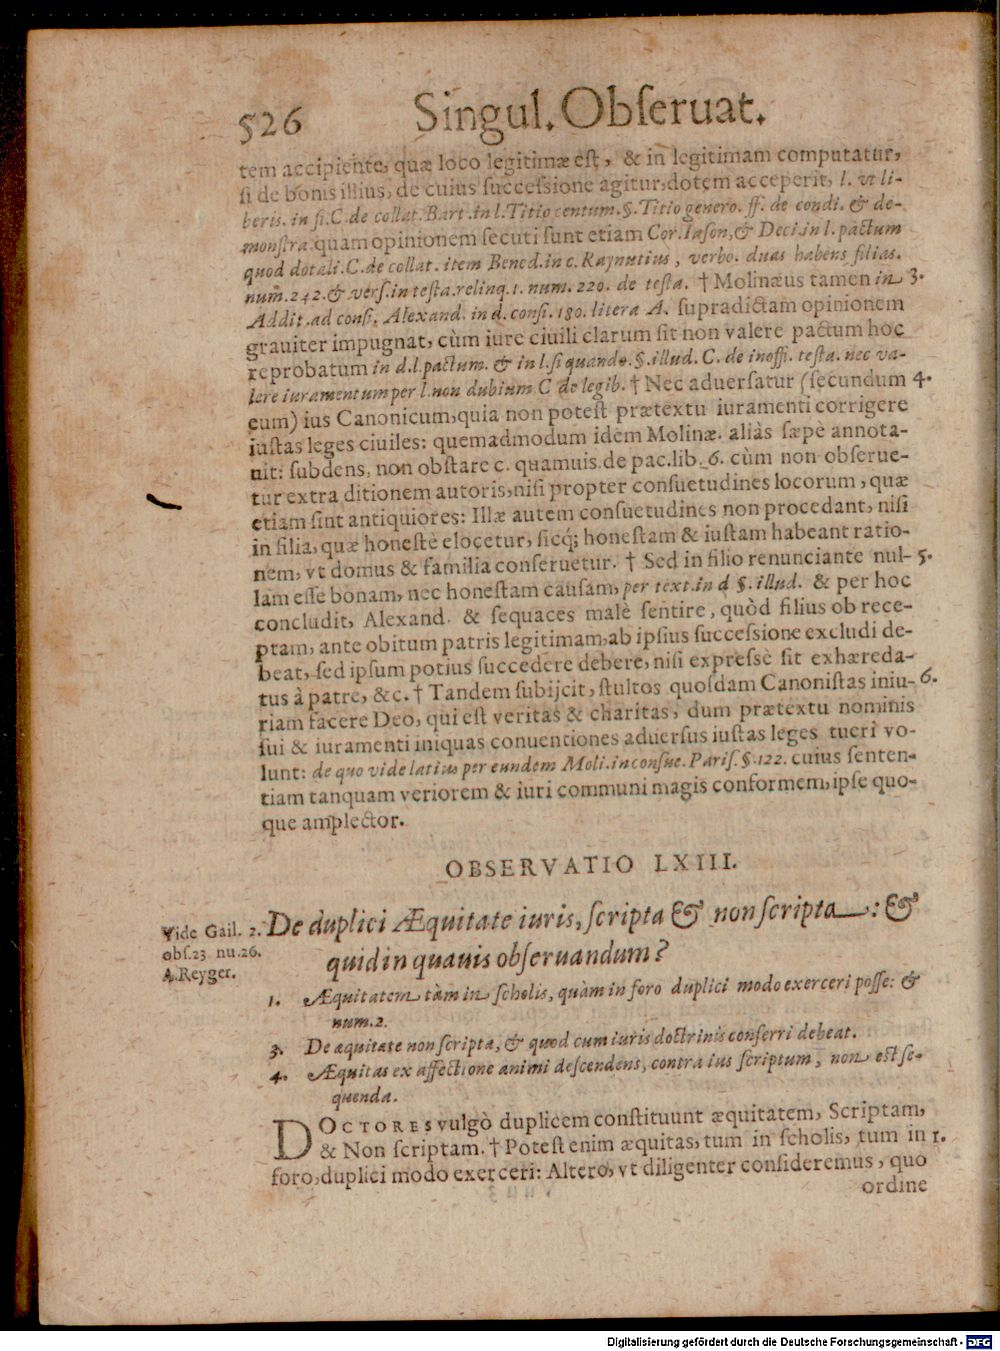 526 Singul. Obſeruat.
tem accipiente, quæ loco legitimæ eſt, & in legitimam computatur,
ſi de bonis illius, de cuius ſucceſsione agitur, dotem acceperit, l. vt li-
beris. in fi. C. de collat. Bart. in l. Titio centum. §. Titio genero. ff. de condi. & de-
monſtra. quam opinionem ſecuti ſunt etiam Cor. Iaſon, & Deci. in l. pactum
quod dotali. C. de collat. item Bened. in c. Raynutius, verbo. duas habens filias.
num. 242. & verſ. in teſta. relinq. 1. num. 220. de teſta. † Molinæus tamen in 3.
Addit. ad conſi. Alexand. in d. conſi. 180. litera A. ſupradictam opinionem
grauiter impugnat, cùm iure ciuili clarum ſit non valere pactum hoc
reprobatum in d. l. pactum. & in l. ſi quando. §. illud. C. de inoffi. teſta. nec va-
lere iuramentum per l. non dubium C de legib. † Nec aduerſatur (ſecundum 4.
eum) ius Canonicum, quia non poteſt prætextu iuramenti corrigere
iuſtas leges ciuiles: quemadmodum idem Molinæ. aliàs ſæpè annota-
uit: ſubdens, non obſtare c. quamuis. de pac. lib. 6. cùm non obſerue-
tur extra ditionem autoris, niſi propter conſuetudines locorum, quæ
etiam ſint antiquiores: Illæ autem conſuetudines non procedant, niſi
in filia, quæ honeſtè elocetur, ſicq; honeſtam & iuſtam habeant ratio-
nem, vt domus & familia conſeruetur. † Sed in filio renunciante nul- 5.
lam eſſe bonam, nec honeſtam cauſam, per text. in d §. illud. & per hoc
concludit, Alexand. & ſequaces malè ſentire, quòd filius ob rece-
ptam, ante obitum patris legitimam, ab ipſius ſucceſsione excludi de-
beat, ſed ipſum potius ſuccedere debere, niſi expreſsè ſit exhæreda-
tus à patre, &c. † Tandem ſubijcit, ſtultos quoſdam Canoniſtas iniu- 6.
riam facere Deo, qui eſt veritas & charitas, dum prætextu nominis
ſui & iuramenti iniquas conuentiones aduerſus iuſtas leges tueri vo-
lunt: de quo vide latius per eundem Moli. in conſue. Pariſ. §. 122. cuius ſenten-
tiam tanquam veriorem & iuri communi magis conformem, ipſe quo-
que amplector.
OBSERVATIO LXIII.
Vide Gail. 2.
obſ. 23. nu. 26.
A. Reyger.
De duplici Æquitate iuris, ſcripta & non ſcripta: &
quid in quauis obſeruandum?
1. Æquitatem tàm in ſcholis, quàm in foro duplici modo exerceri poſſe: &
num. 2.
3. De æquitate non ſcripta, & quod cum iuris doctrinis conferri debeat.
4. Æquitas ex affectione animi deſcendens, contra ius ſcriptum, non eſt ſe-
quenda.
DOCTORES vulgò duplicem conſtituunt æquitatem, Scriptam,
& Non ſcriptam. † Poteſt enim æquitas, tum in ſcholis, tum in 1.
foro, duplici modo exerceri: Altero, vt diligenter conſideremus, quo
ordine
Digitalisierung gefördert durch die Deutsche Forschungsgemeinschaft - DFG